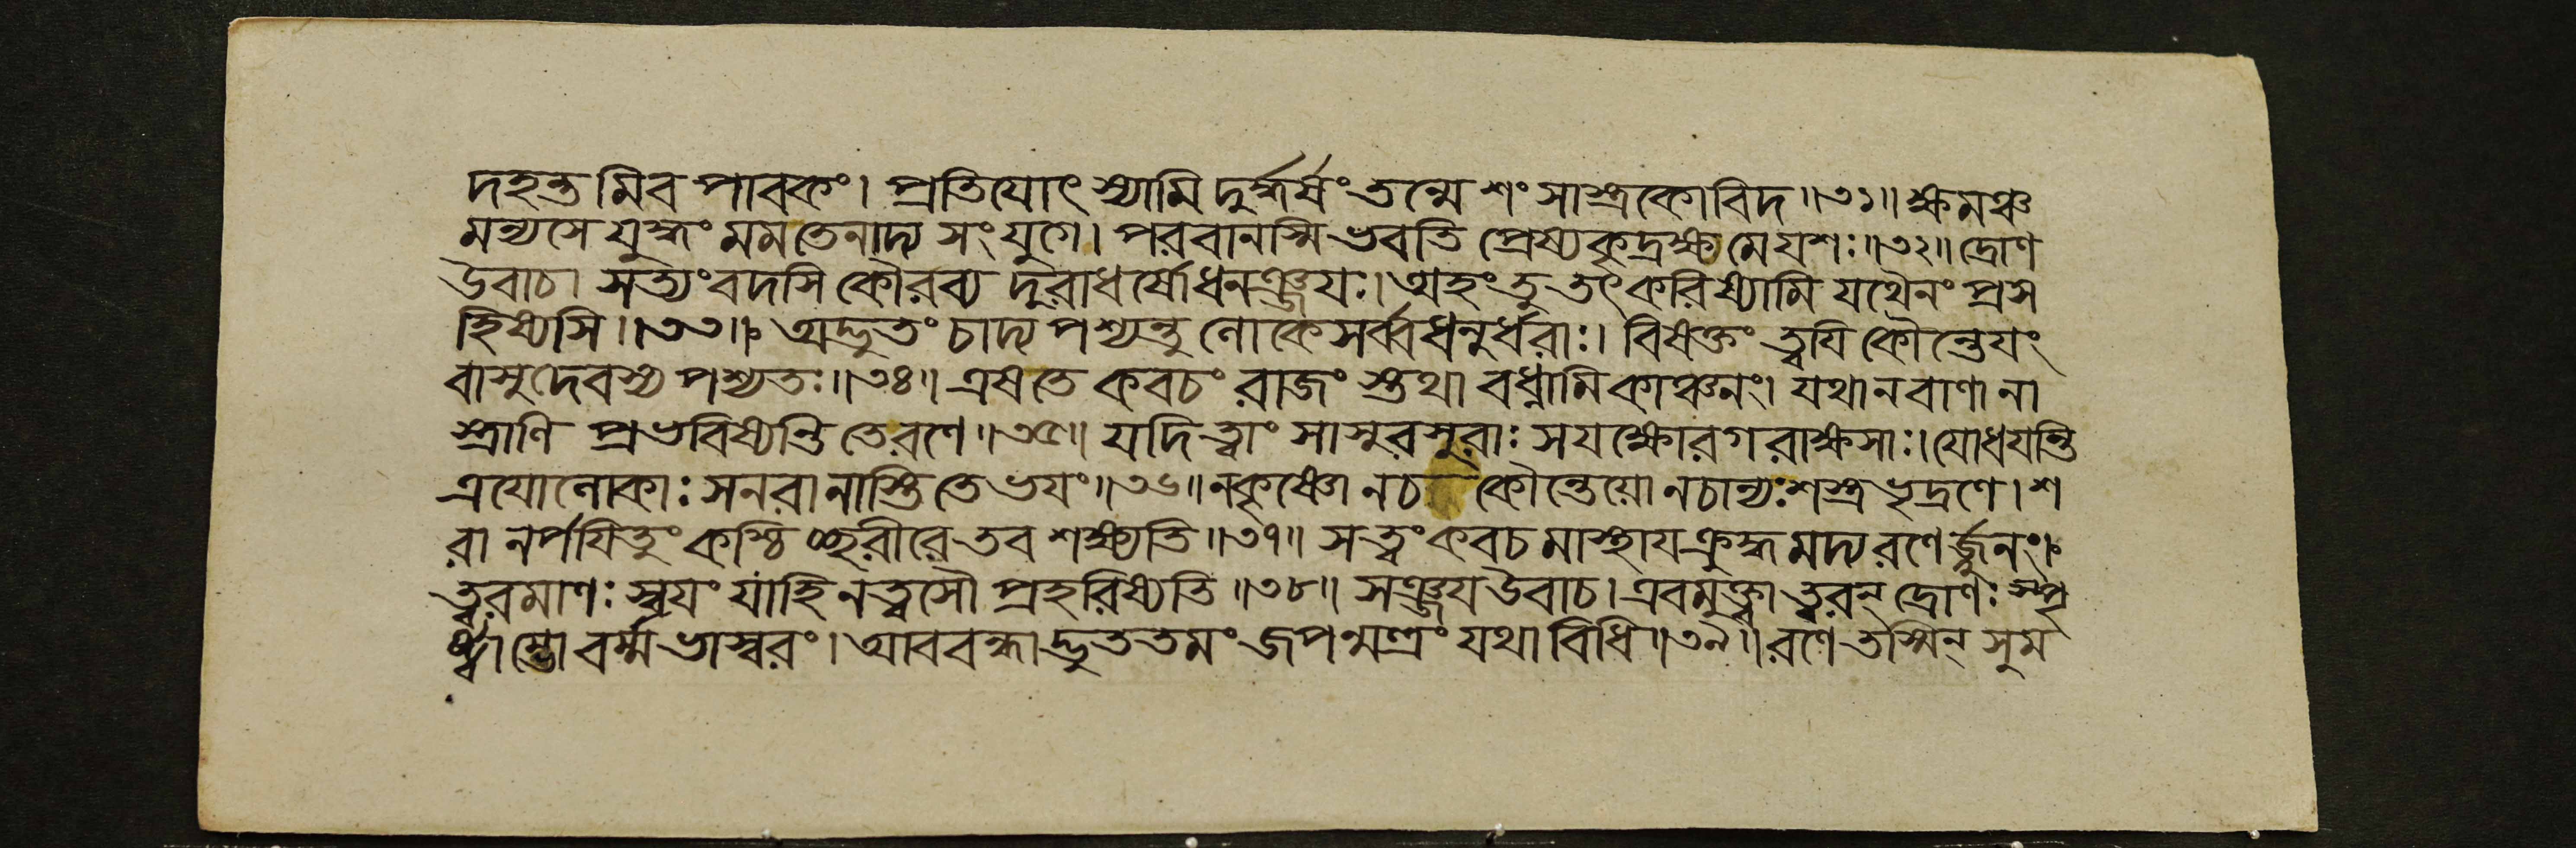 দহন্তমিব পাবকং। প্রতিযোৎস্যামি দুর্দ্ধর্ষং তন্মে শং সাস্ত্রকোবিদ॥৩১॥ ক্ষমঞ্চ
মন্যসে যুদ্ধং মম তেনাদ্য সংযুগে। পরবানস্মি ভবতি প্রেষ্যকৃদ্রক্ষ মে যশঃ॥৩২॥ দ্রোণ
উবাচ। সত্যং বদসি কৌরব্য দুরাধর্ষো ধনঞ্জয়ঃ। অহং তু তৎ করিষ্যামি যথৈনং প্রস
হিষ্যসি॥৩৩॥ অদ্ভুতং চাদ্য পশ্যন্তু লোকে সর্ব্বধনুর্ধরাঃ। বিষক্তং ত্বযি কৌন্তেযং
বাসুদেবস্য পশ্যতঃ॥৩৪॥ এষ তে কবচং রাজং স্তথা বধ্নামি কাঞ্চনং। যথা ন বাণা না
স্ত্রাণি প্রভবিষ্যন্তি তে রণে॥৩৫॥ যদি ত্বাং সাসুরসুরাঃ সযক্ষোরগরাক্ষসাঃ। যোধযন্তি
ত্রযো লোকাঃ সনরা নাস্তি তে ভযং॥৩৬॥ ন কৃষ্ণো ন চ কৌন্তেযো ন চান্যঃ শস্ত্রভৃদ্রণে। শ
রানর্পযিতুং কশ্চিচ্ছরীরে তব শক্ষ্যতি॥৩৭॥ স ত্বং কবচমাস্থায ক্রুদ্ধমদ্য রণের্জ্জুনং।
ত্বরমাণঃ স্বযং যাহি ন ত্বসৌ প্রহরিষ্যতি॥৩৮॥ সঞ্জয উবাচ। এবমুক্ত্বা ত্বরন্ দ্রোণঃ স্পৃ
ষ্ট্বাম্ভো বর্ম্ম ভাস্বরং। আববন্ধাদ্ভুততমং জপন্মন্ত্রং যথাবিধি॥৩৯॥ রণে তস্মিন্ সুম